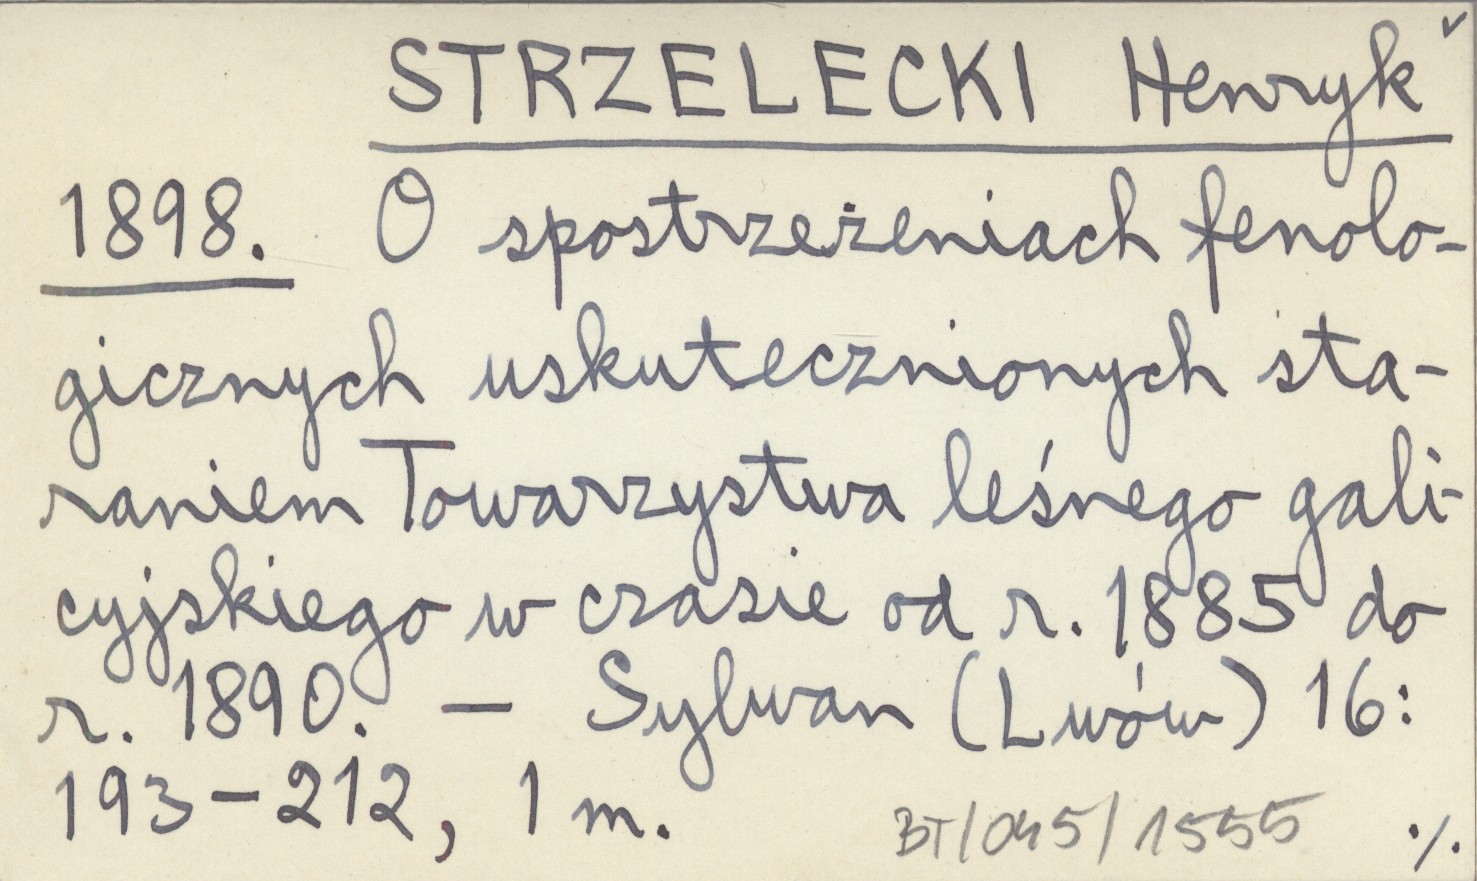 STRZELECKI Henryk ˇ
1898. O spostrzeżeniach fenolo-
gicznych uskutecznionych sta-
raniem Towarzystwa leśnego gali-
cyjskiego w czasie od r. 1885 do
r. 1890. — Sylwan (Lwów) 16:
193-212, 1 m.
BT/045/1555 ./.